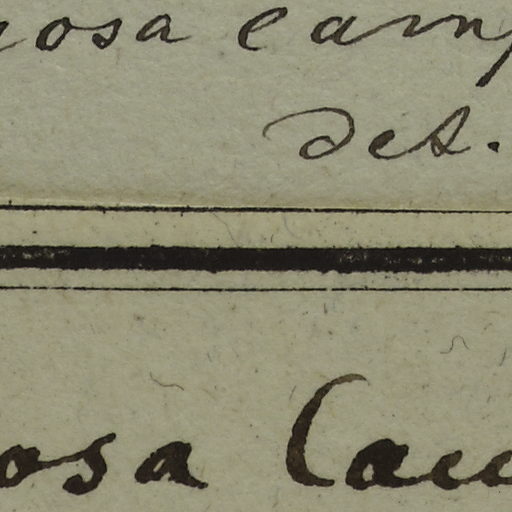 osa camp
det.
osa Cau